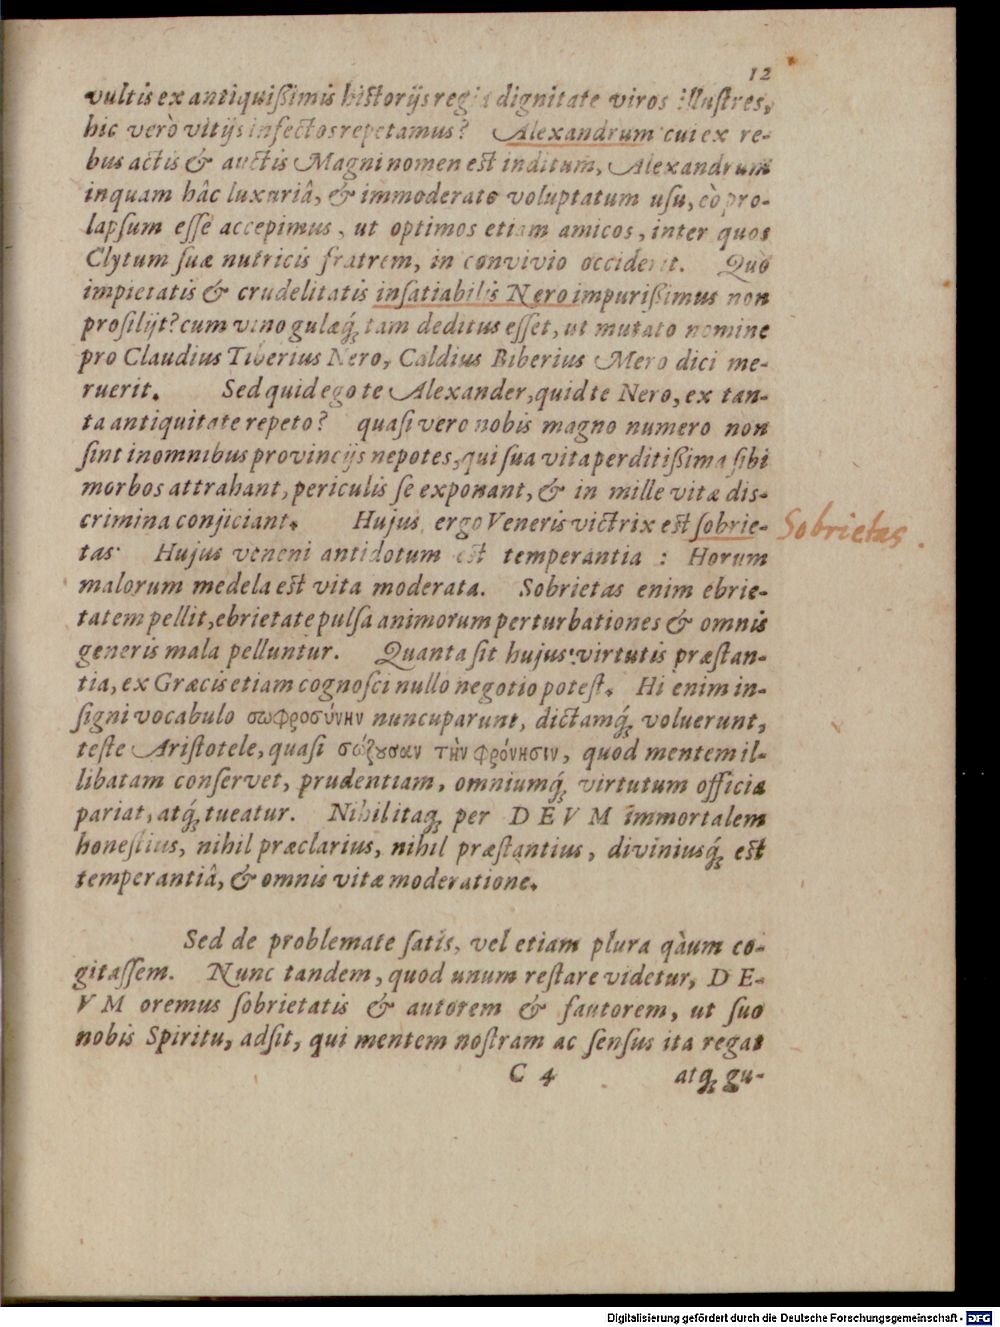 12
vultis ex antiquißimis historijs regia dignitate viros illustres,
hic verò vitijs infectos repetamus? Alexandrum cui ex re-
bus actis & auctis Magni nomen est inditum, Alexandrum
inquam hâc luxuriâ, & immoderato voluptatum usu, eò pro-
lapsum esse accepimus, ut optimos etiam amicos, inter quos
Clytum suæ nutricis fratrem, in convivio occiderit. Quò
impietatis & crudelitatis insatiabilis Nero impurißimus non
prosilijt? cum vino gulæq́; tam deditus esset, ut mutato nomine
pro Claudius Tiberius Nero, Caldius Biberius Mero dici me-
ruerit. Sed quid ego te Alexander, quid te Nero, ex tan-
ta antiquitate repeto? quasi vero nobis magno numero non
sint in omnibus provincijs nepotes, qui sua vita perditißima sibi
morbos attrahant, periculis se exponant, & in mille vitæ dis-
crimina conjiciant. Hujus ergo Veneris victrix est sobrie-
tas Hujus veneni antidotum est temperantia : Horum
malorum medela est vita moderata. Sobrietas enim ebrie-
tatem pellit, ebrietate pulsa animorum perturbationes & omnis
generis mala pelluntur. Quanta sit hujus virtutis præstan-
tia, ex Græcis etiam cognosci nullo negotio potest. Hi enim in-
signi vocabulo σωφροσύνην nuncuparunt, dictamq́; voluerunt,
teste Aristotele, quasi σώζουσαν τὴν φρόνησιν, quod mentem il-
libatam conservet, prudentiam, omniumq́; virtutum officia
pariat, atq́; tueatur. Nihil itaq; per DEVM immortalem
honestius, nihil præclarius, nihil præstantius, diviniusq́; est
temperantiâ, & omnis vitæ moderatione.
Sed de problemate satis, vel etiam plura qàum co-
gitassem. Nunc tandem, quod unum restare videtur, DE-
VM oremus sobrietatis & autorem & fautorem, ut suo
nobis Spiritu, adsit, qui mentem nostram ac sensus ita regat
C 4 atq; gu-
Sobrietas.
Digitalisierung gefördert durch die Deutsche Forschungsgemeinschaft - DFG